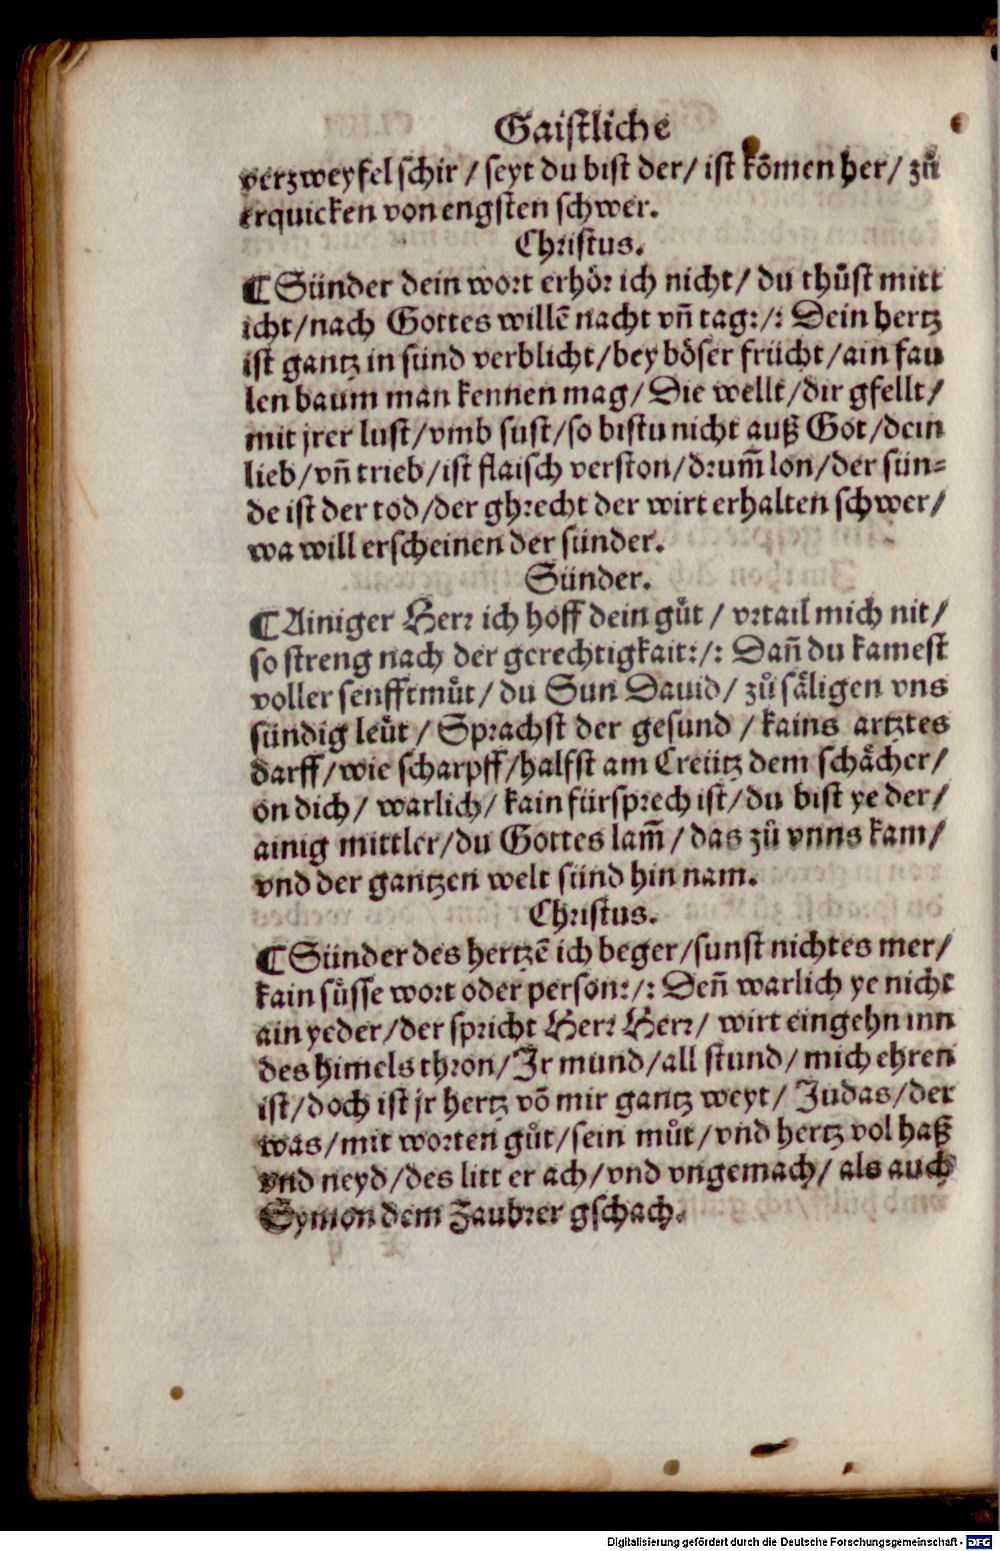 Gaistliche
verzweyfel schir / seyt du bist der / ist kōmen her / zuͦ
erquicken von engsten schwer.
Christus.
¶ Sünder dein wort erhoͤr ich nicht / du thuͦst mitt
icht / nach Gottes willē nacht vñ tag :/: Dein hertz
ist gantz in sünd verblicht / bey boͤser frücht / ain fau
len baum man kennen mag / Die wellt / dir gfellt /
mit jrer lust / vmb sust / so bistu nicht auß Got / dein
lieb / vñ trieb / ist flaisch verston / drum̃ lon / der sün⸗
de ist der tod / der ghrecht der wirt erhalten schwer /
wa will erscheinen der sünder.
Sünder.
¶ Ainiger Herr ich hoff dein guͤt / vrtail mich nit /
so streng nach der gerechtigkait :/: Dañ du kamest
voller senfftmuͤt / du Sun Dauid / zuͦ saͤligen vns
sündig leuͤt / Sprachst der gesund / kains artztes
darff / wie scharpff / halfst am Creütz dem schaͤcher /
on dich / warlich / kain fürsprech ist / du bist ye der /
ainig mittler / du Gottes lam̃ / das zuͦ vnns kam /
vnd der gantzen welt sünd hin nam.
Christus.
¶ Sünder des hertzē ich beger / sunst nichtes mer /
kain suͤsse wort oder person :/: Deñ warlich ye nicht
ain yeder / der spricht Herr Herr / wirt eingehn inn
des himels thron / Jr mund / all stund / mich ehren
ist / doch ist jr hertz vō mir gantz weyt / Judas / der
was / mit worten guͦt / sein muͦt / vnd hertz vol haß
vnd neyd / des litt er ach / vnd vngemach / als auch
Symon dem Zaubrer gschach.
Digitalisierung gefördert durch die Deutsche Forschungsgemeinschaft - DFG